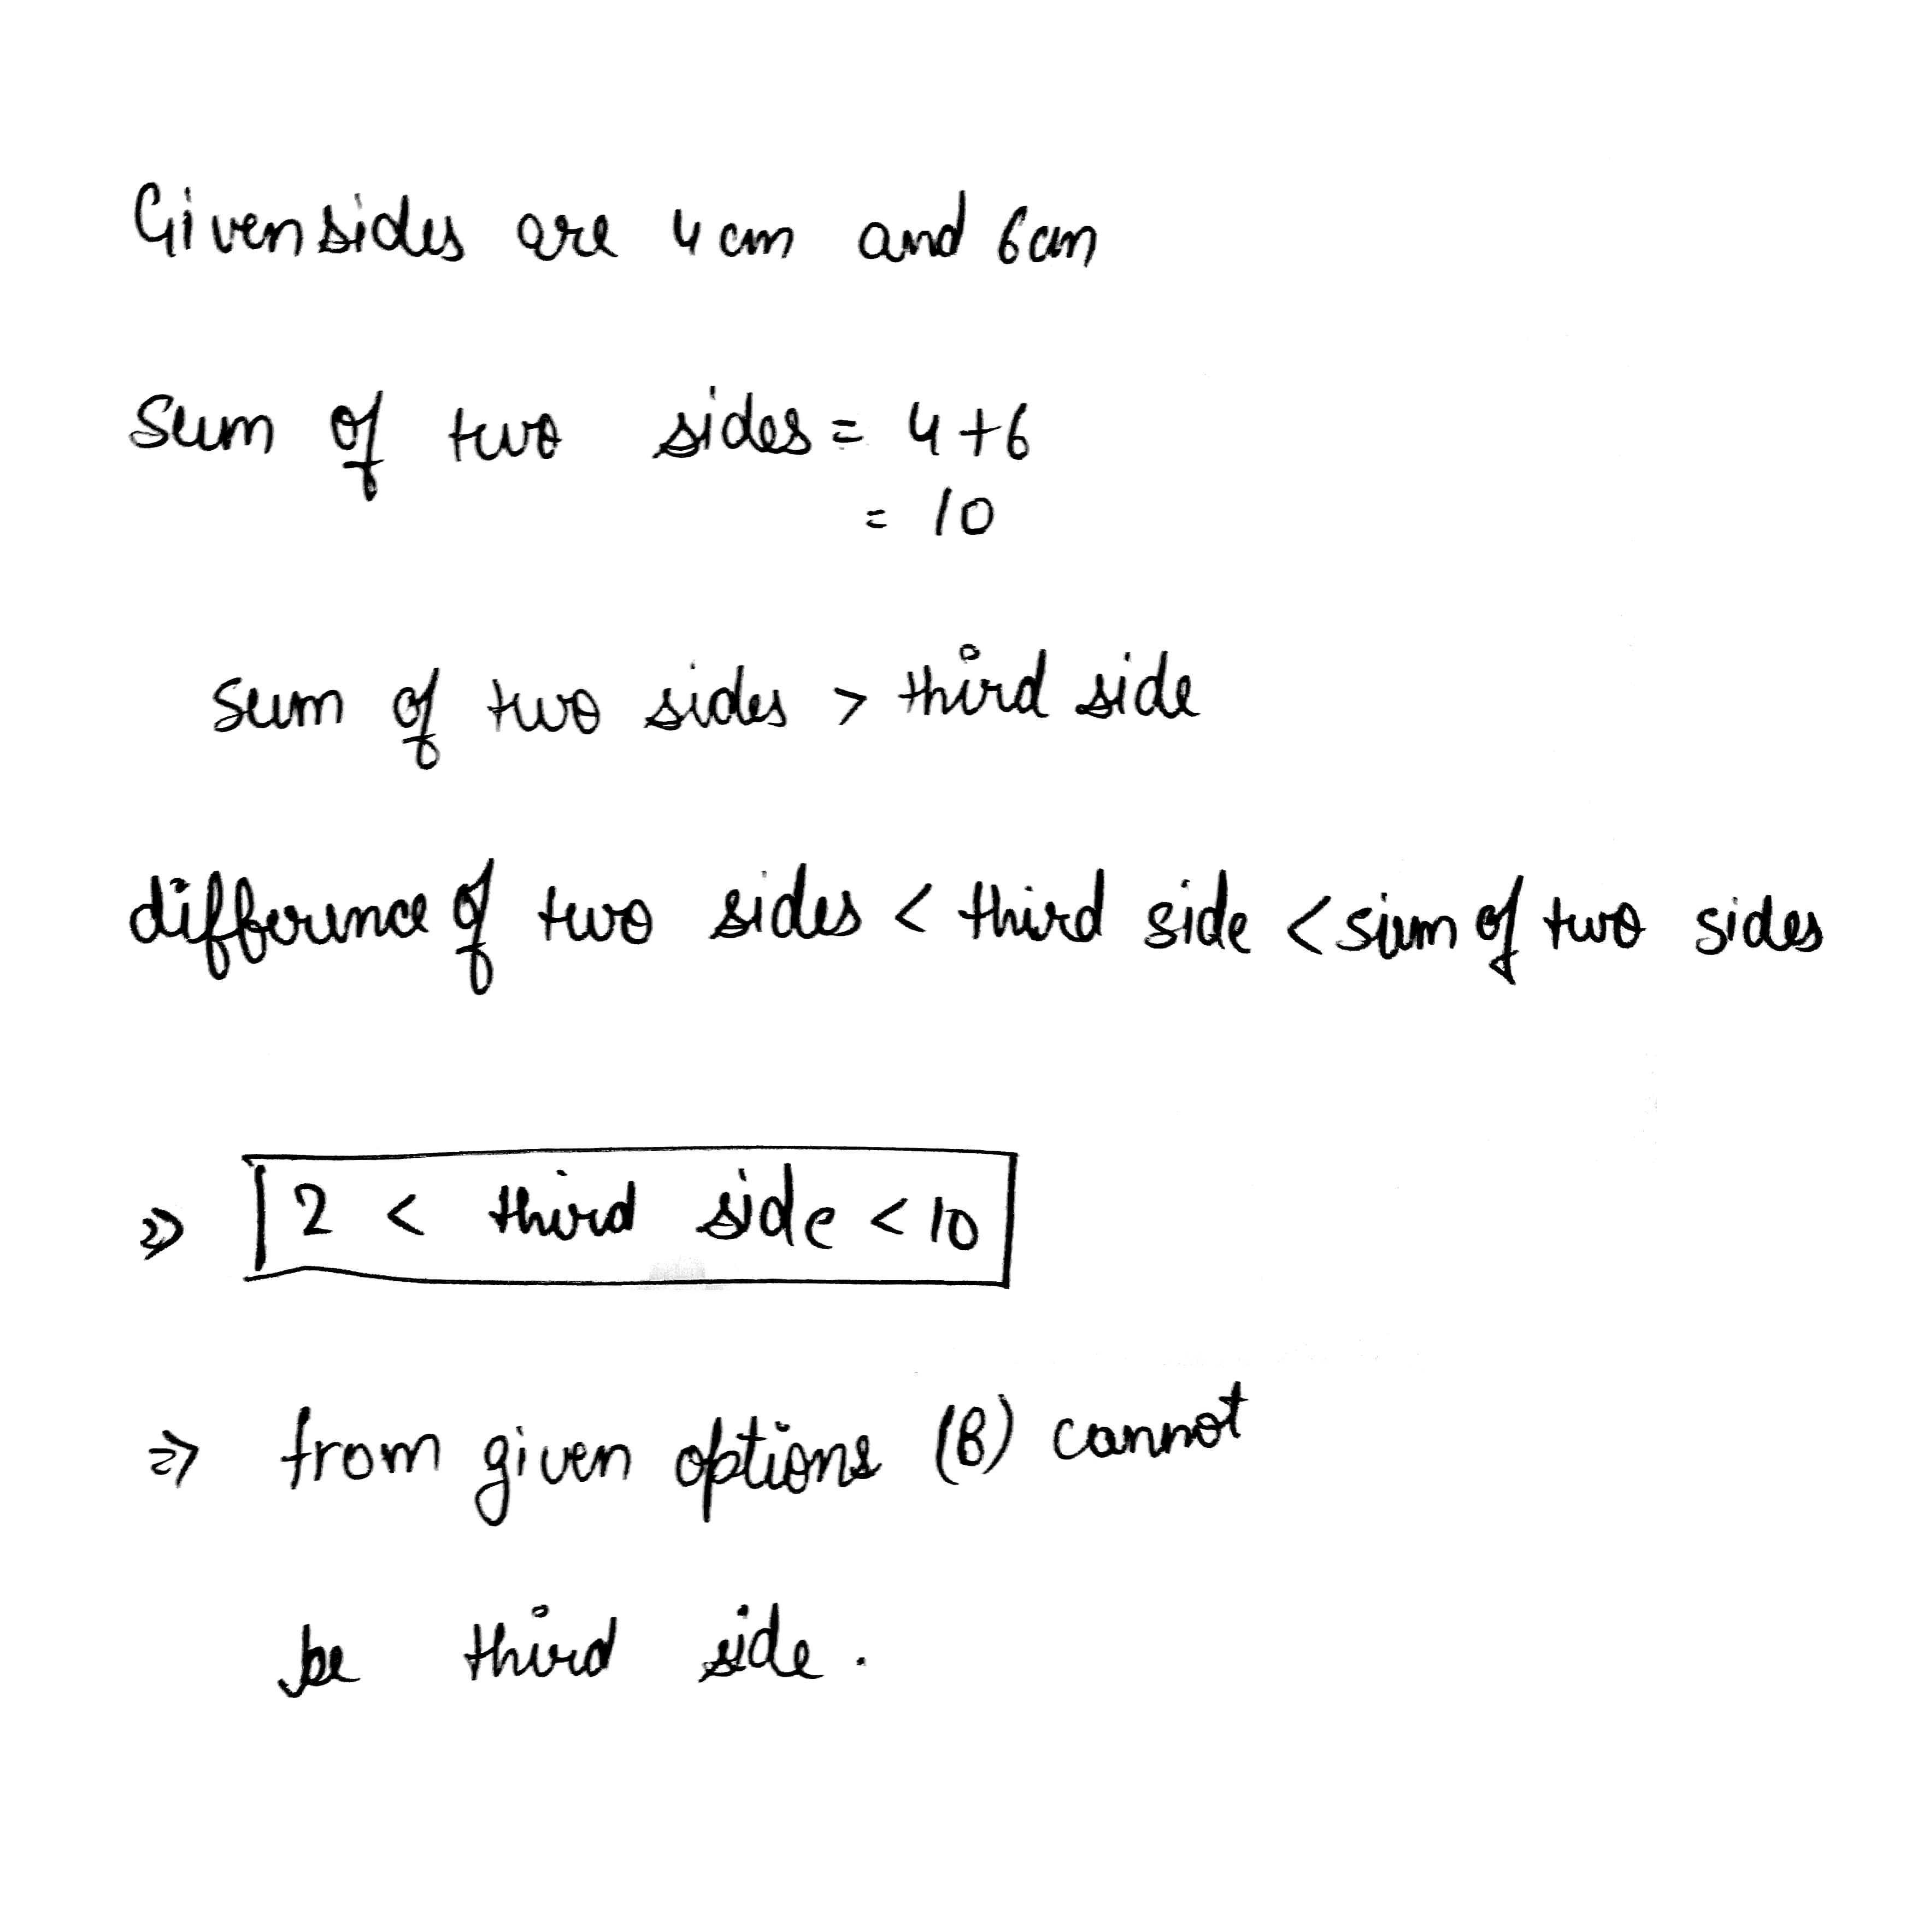 Given sides are 4 cm and 6 cm
Sum of two sides = 4 + 6
= 10
sum of two sides > third side
difference of two sides < third side < sum of two sides
⇒ 2 < third side < 10
⇒ from given options (B) cannot
be third side.